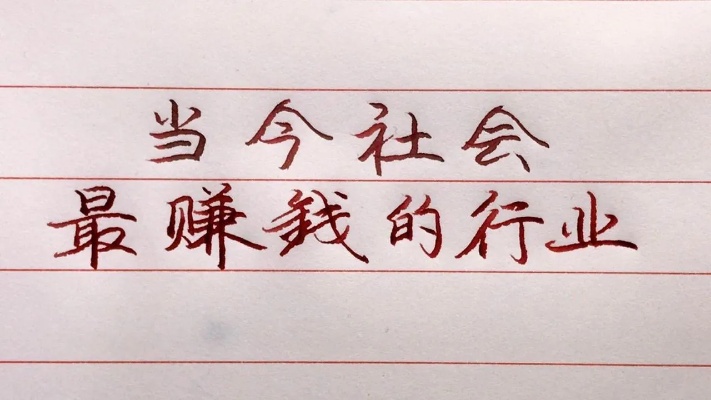 当今社会
最赚錢的行业